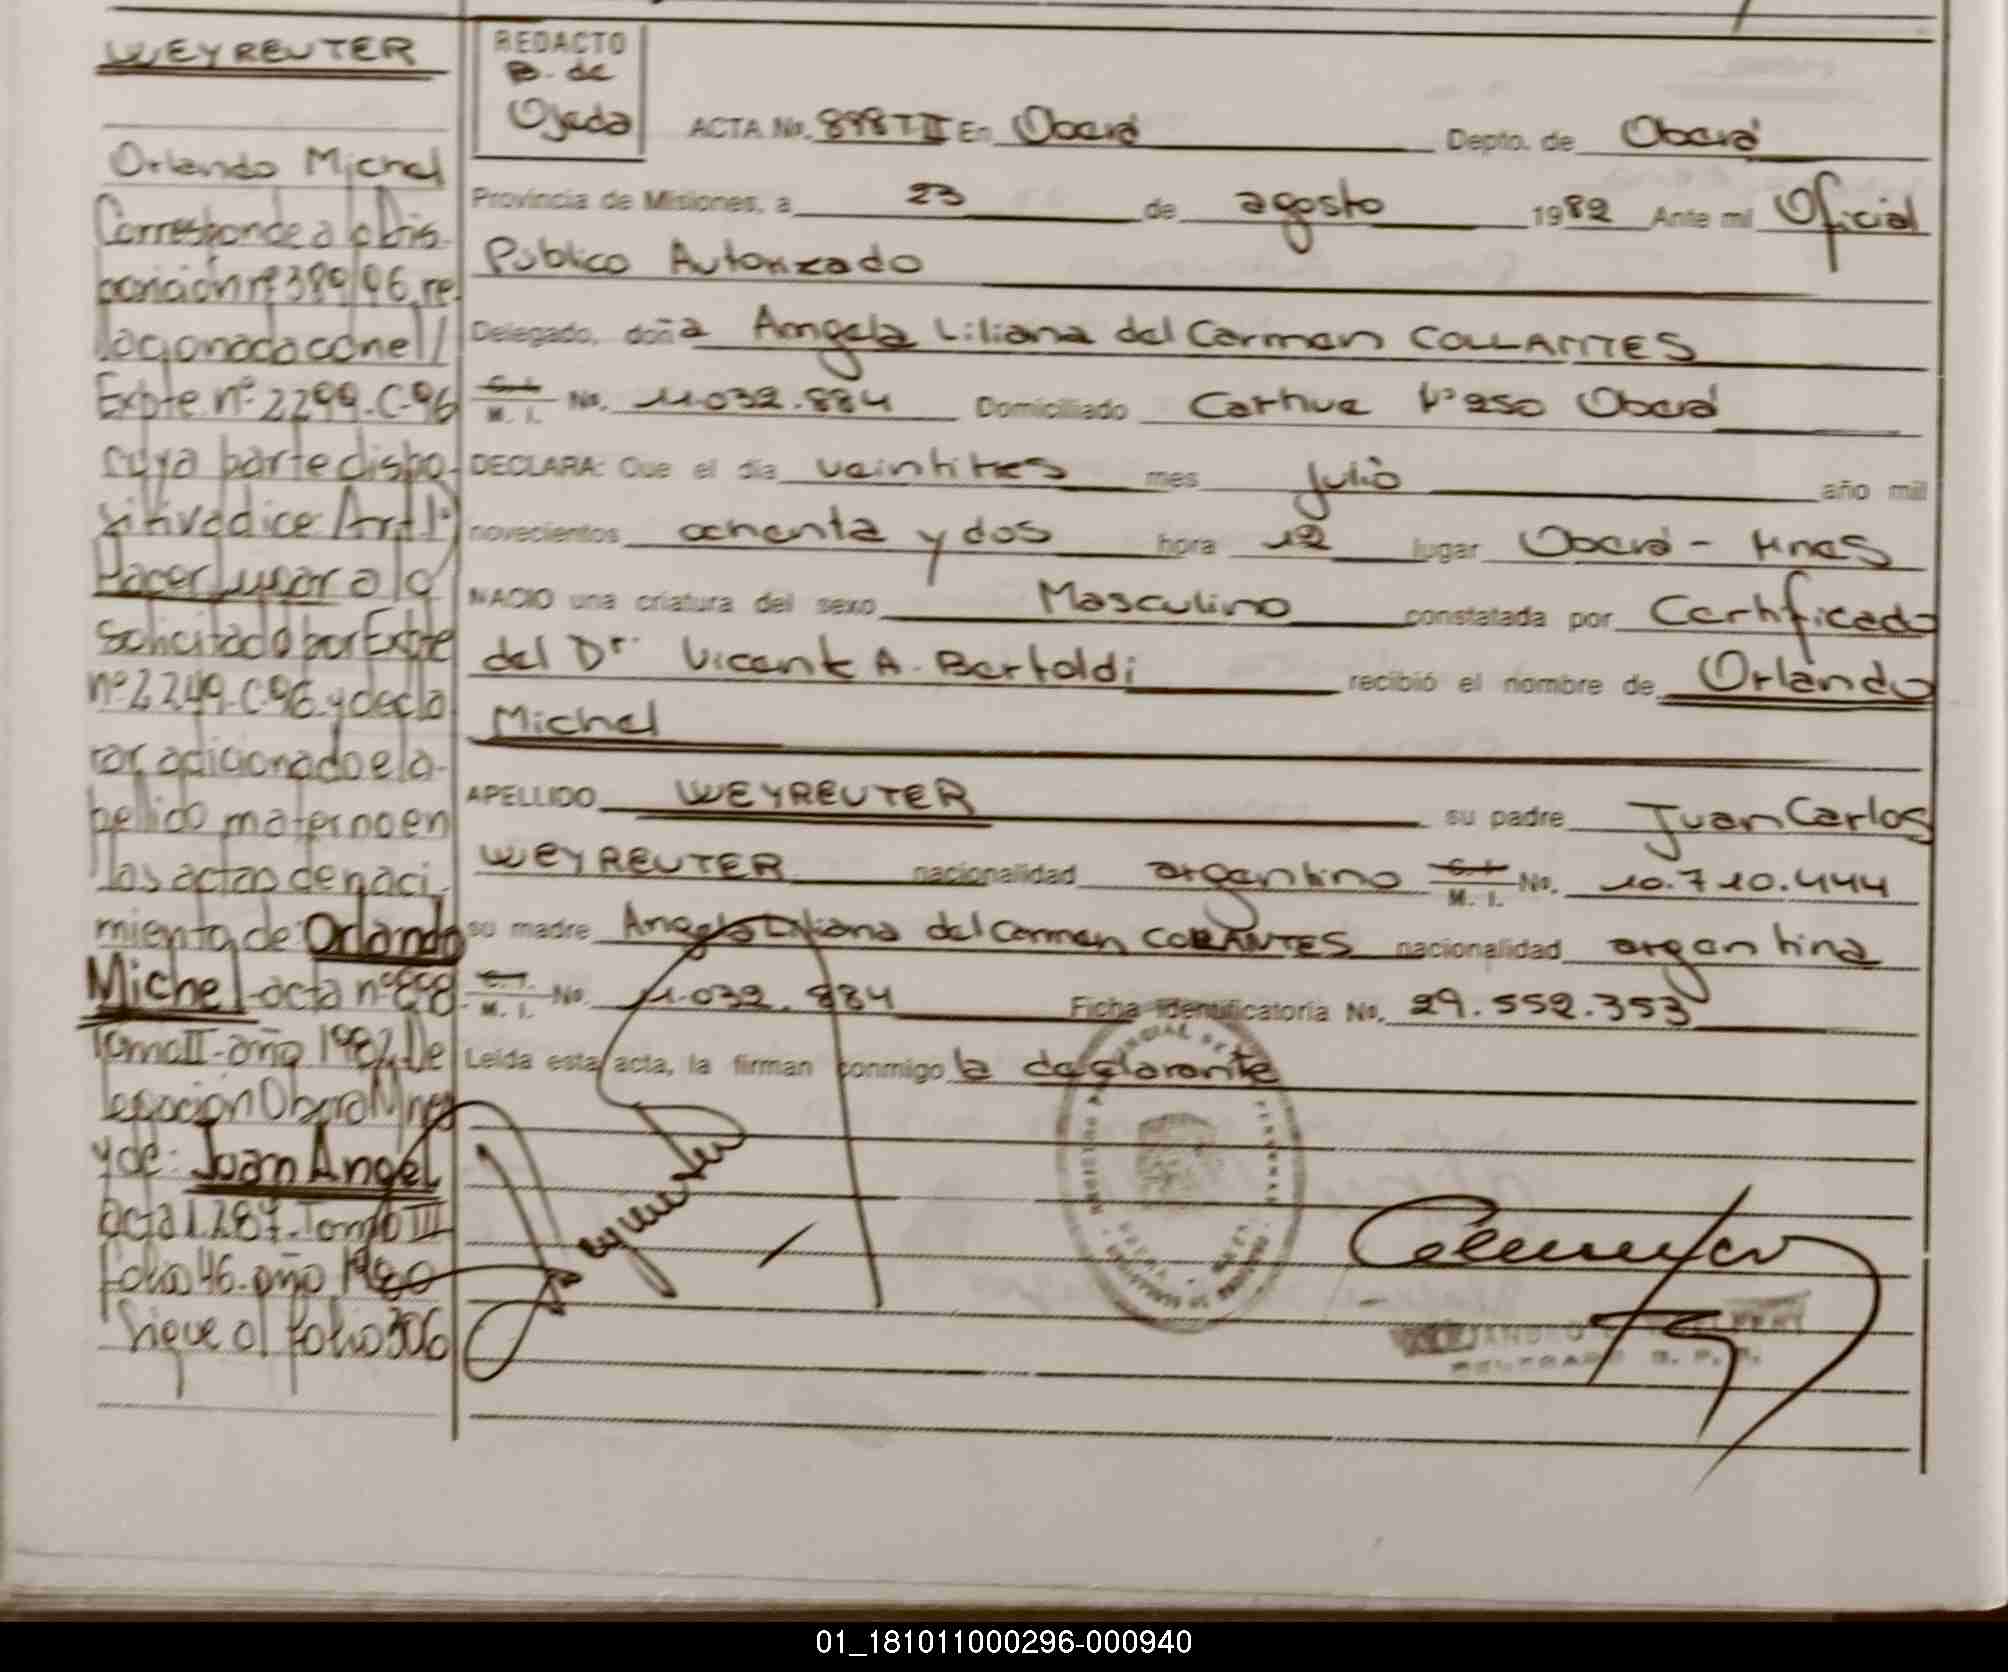 WEYREUTER
Orlando Michel
Corresponde a la Dis-
posición nº 389/96, re
lacionada con el /
Expte nº 2299-C-96
cuya parte dispo-
sitiva dice: Art 1º)
Hacer lugar a lo
solicitado por Expte
nº 2249-C-96 y decla
rar adicionado el a-
pellido materno en
las actas de naci-
miento de: Orlando
Michel - acta nº 898
Tomo II - año 1982, De
legación Oberá Mnes
y de: Juan Angel
acta 1.287 - Tomo III
folio 46 - año 1980
Sigue al folio 306
REDACTO
B. de
Ojeda
ACTA No. 898 T II En Oberá Depto. de Oberá
Provincia de Misiones, a 23 de agosto 1982 Ante mí Oficial
Público Autorizado
Delegado, doña Angela Liliana del Carmen COLLANTES
C. I.
M. I. No. 11.032.884 Domiciliado Carhue Nº 250 Oberá
DECLARA: Que el día veintitres mes julio año mil
novecientos ochenta y dos hora 12 lugar Oberá - Mnes
NACIO una criatura del sexo Masculino constatada por Certificado
del Dr. Vicente A. Bertoldi recibió el nombre de Orlando
Michel
APELLIDO WEYREUTER su padre Juan Carlos
WEYREUTER nacionalidad argentino C. I.
M. I. No. 10.710.444
su madre Angela Liliana del Carmen COLLANTES nacionalidad argentina
C. I.
M. I. No. 11.032.884 Ficha Identificatoria No. 29.552.353
Leída esta acta, la firman conmigo la declarante
01_181011000296-000940